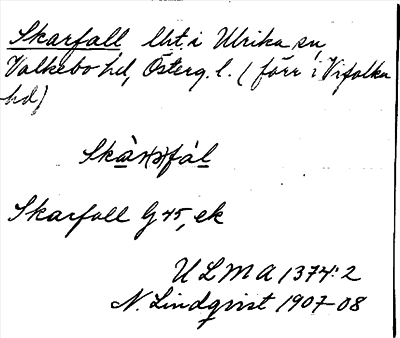 Skarfall lht. i Ulrika sn,
Valkebo hd, Österg. l. (förr i Vifolka
hd)
Skarfall G 45, ek
ULMA 1374:2
N. Lindqvist 1907-08